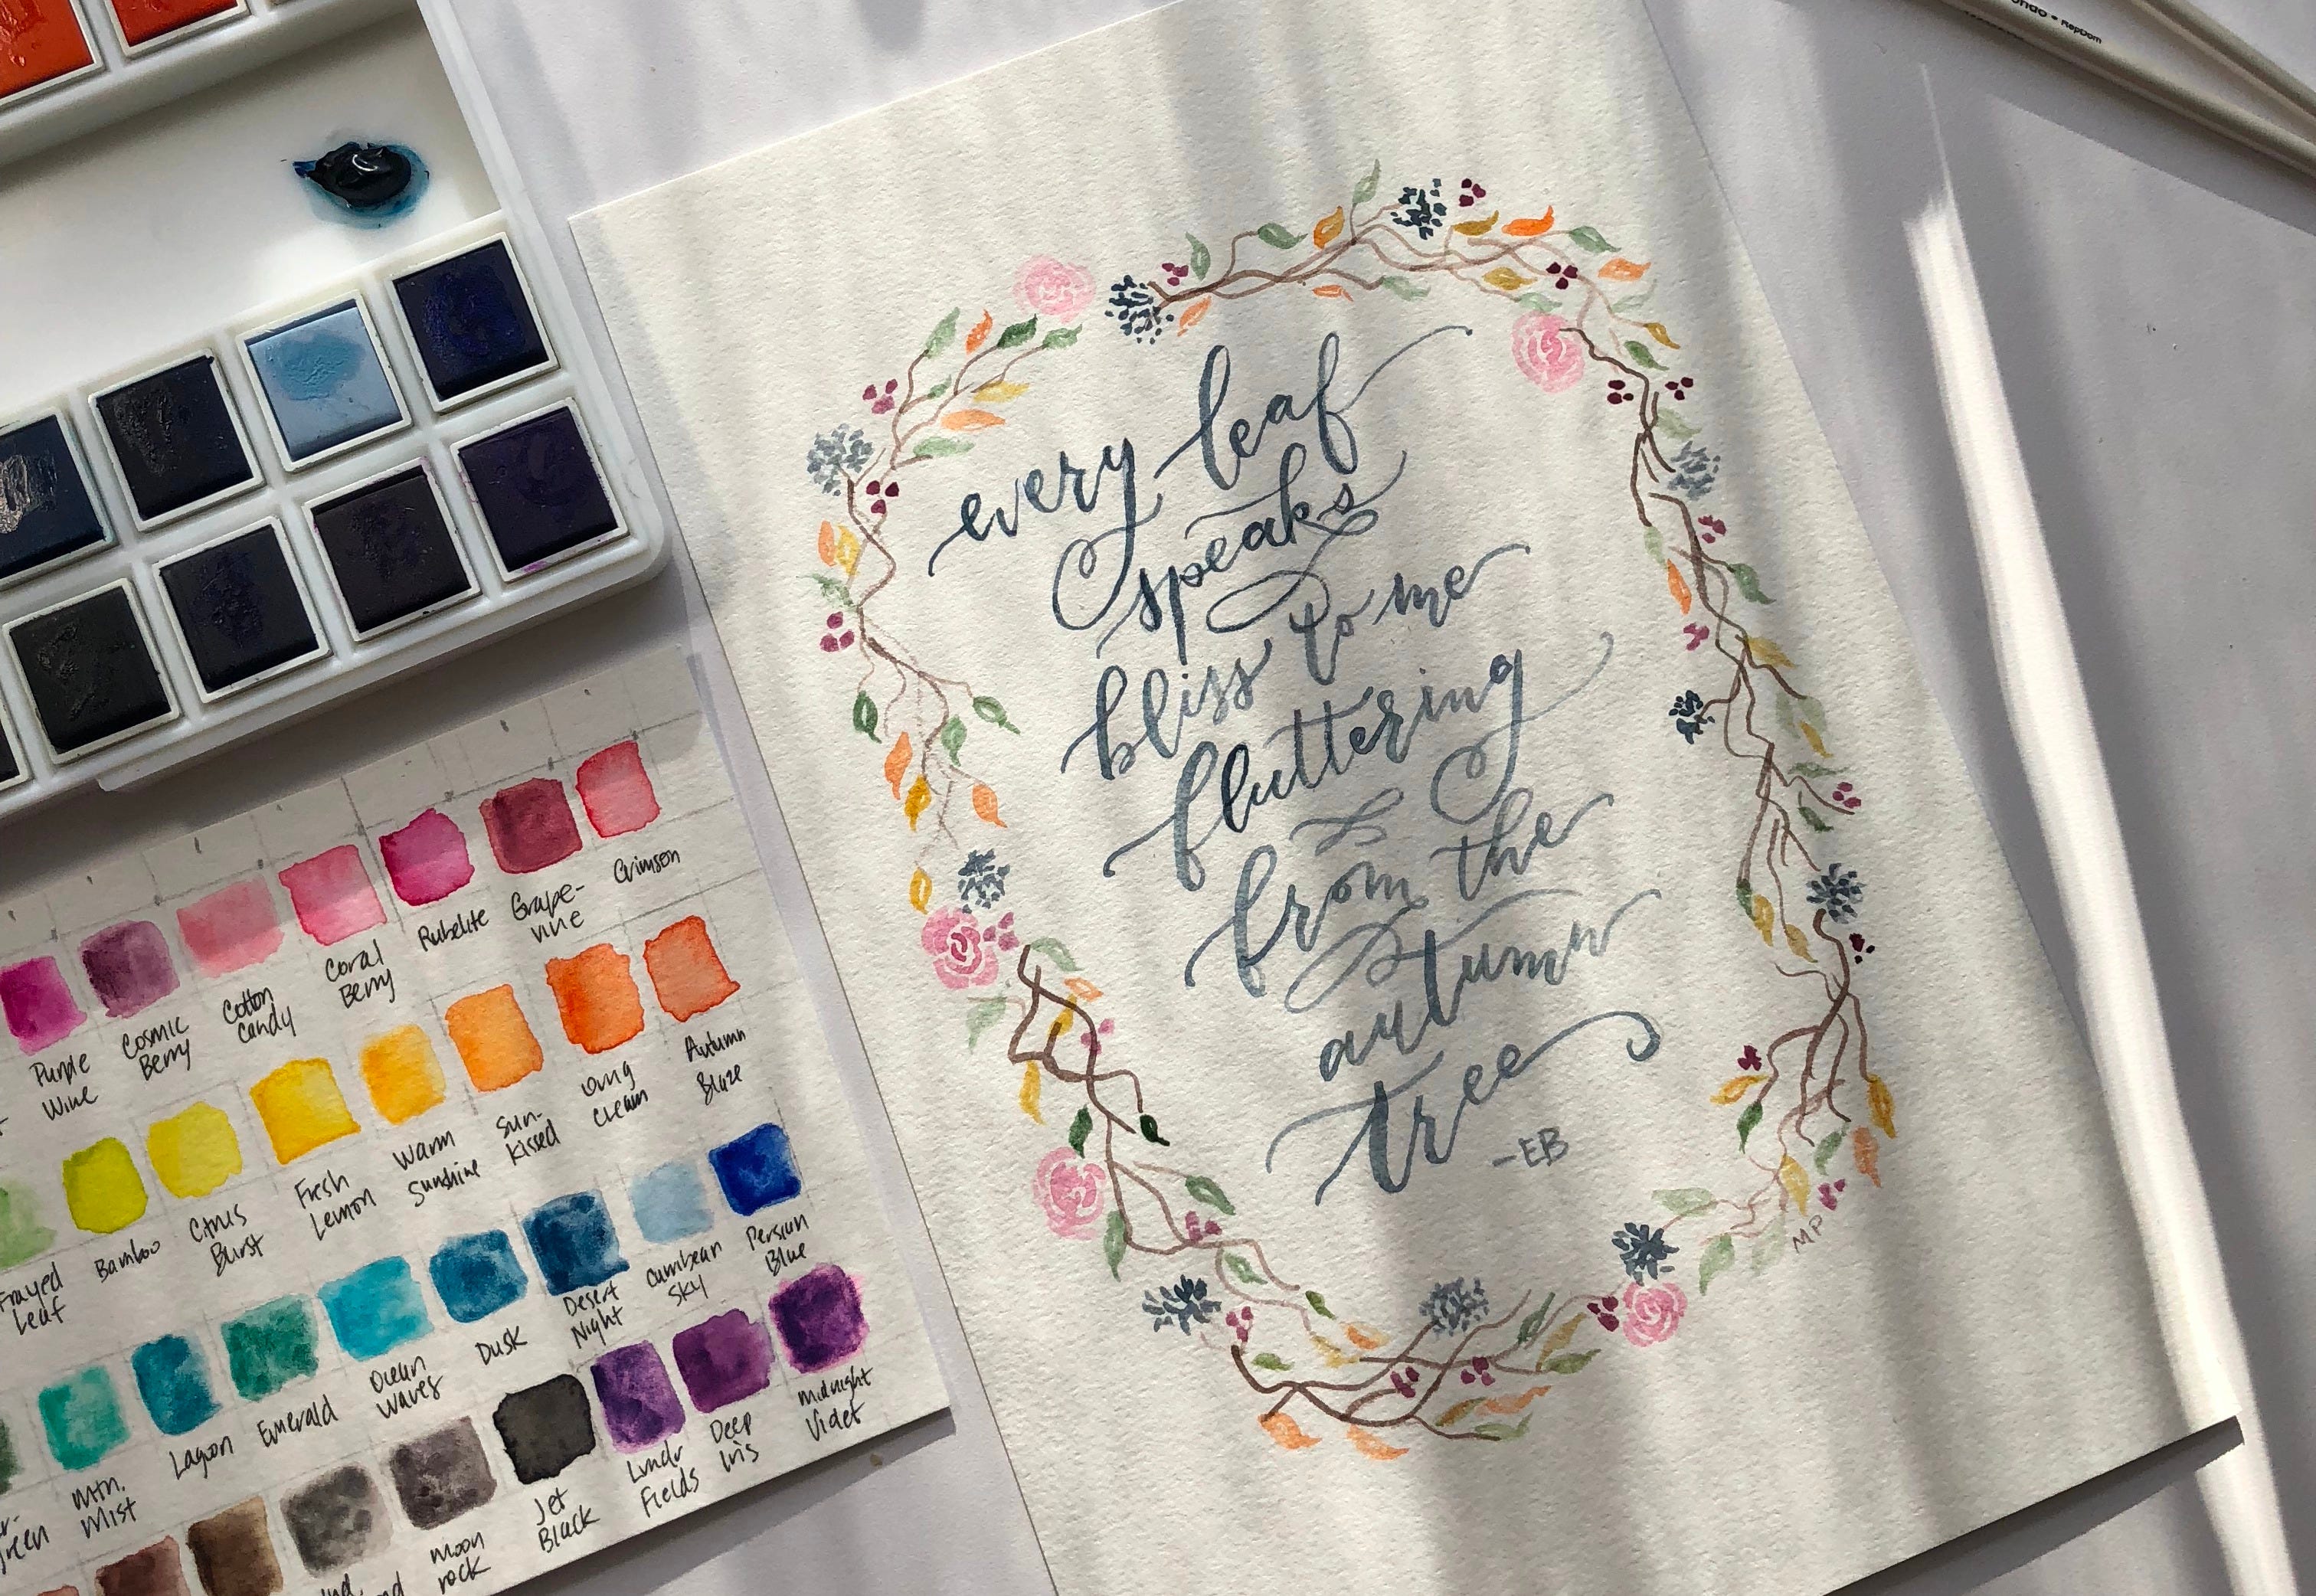 RepDom
every leaf
speaks
bliss to me
fluttering
from the
autumn
tree
-EB
MP
Crimson
Grape-
vine
Rubelite
Coral
Berry
Cotton
Candy
Cosmic
Berry
Purple
Wine
Autumn
Blaze
Orng
Cream
Sun-
kissed
Warm
Sunshine
Fresh
Lemon
Citrus
Burst
Bamboo
Frayed
Leaf
Persian
Blue
Carribean
Sky
Desert
Night
Dusk
Ocean
Waves
Emerald
Lagoon
Mtn.
Mist
Midnight
Violet
Deep
Iris
Lvndr
Fields
Jet
Black
Moon
rock